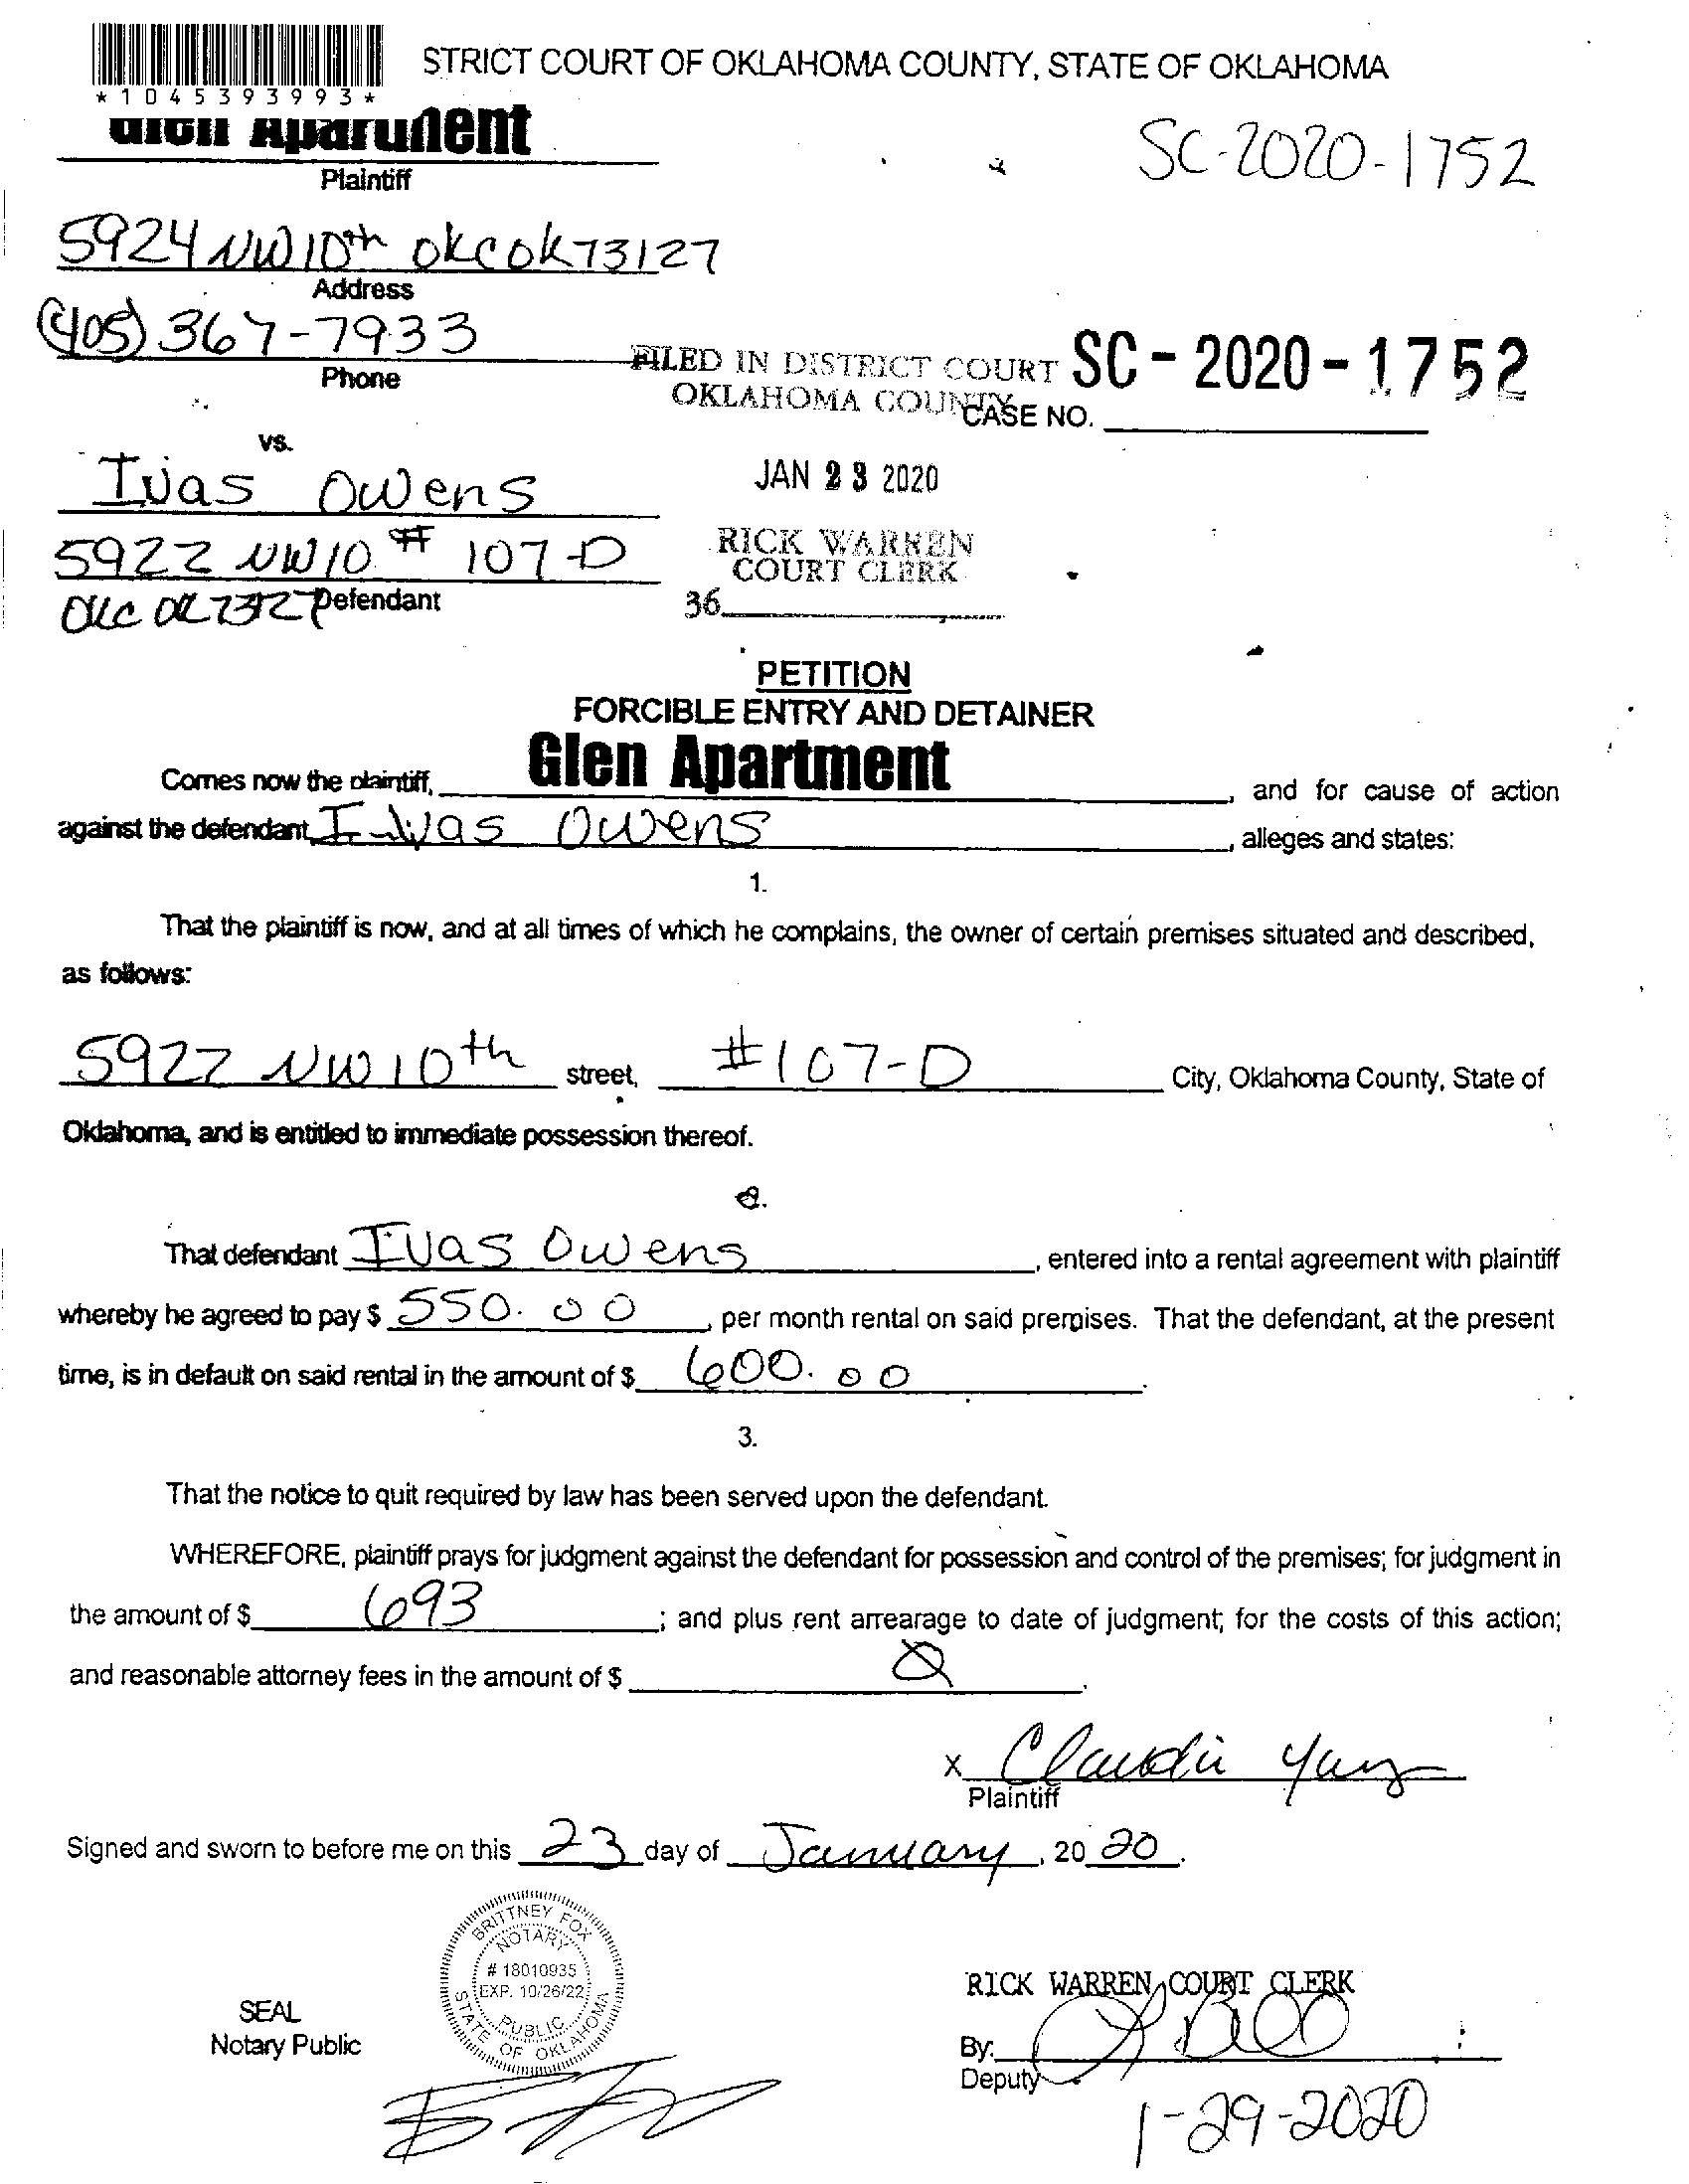 STRICT COURT OF OKLAHOMA COUNTY, STATE OF OKLAHOMA
*1045393993*
Glen Apartment
SC-2020-1752
Plaintiff
5924 NW 10th OKC OK 73127
Address
(405) 367-7933
Phone
FILED IN DISTRICT COURT
OKLAHOMA COUNTY
SC-2020-1752
CASE NO.
vs.
Ivas Owens
JAN 23 2020
5922 NW 10 # 107-D
RICK WARREN
COURT CLERK
OKC OK 73127 Defendant
36
PETITION
FORCIBLE ENTRY AND DETAINER
Comes now the plaintiff, Glen Apartment, and for cause of action
against the defendant Ivas Owens, alleges and states:
1.
That the plaintiff is now, and at all times of which he complains, the owner of certain premises situated and described,
as follows:
5922 NW 10th street, #107-D City, Oklahoma County, State of
Oklahoma, and is entitled to immediate possession thereof.
2.
That defendant Ivas Owens, entered into a rental agreement with plaintiff
whereby he agreed to pay $ 550.00, per month rental on said premises. That the defendant, at the present
time, is in default on said rental in the amount of $ 600.00.
3.
That the notice to quit required by law has been served upon the defendant.
WHEREFORE, plaintiff prays for judgment against the defendant for possession and control of the premises; for judgment in
the amount of $ 693; and plus rent arrearage to date of judgment; for the costs of this action;
and reasonable attorney fees in the amount of $ 0.
x Claudia
Plaintiff
Signed and sworn to before me on this 23 day of January, 2020.
BRITTNEY FOX
NOTARY
# 18010935
EXP. 10/26/22
PUBLIC
STATE OF OKLAHOMA
SEAL
Notary Public
RICK WARREN, COURT CLERK
By:
Deputy
1-29-2020